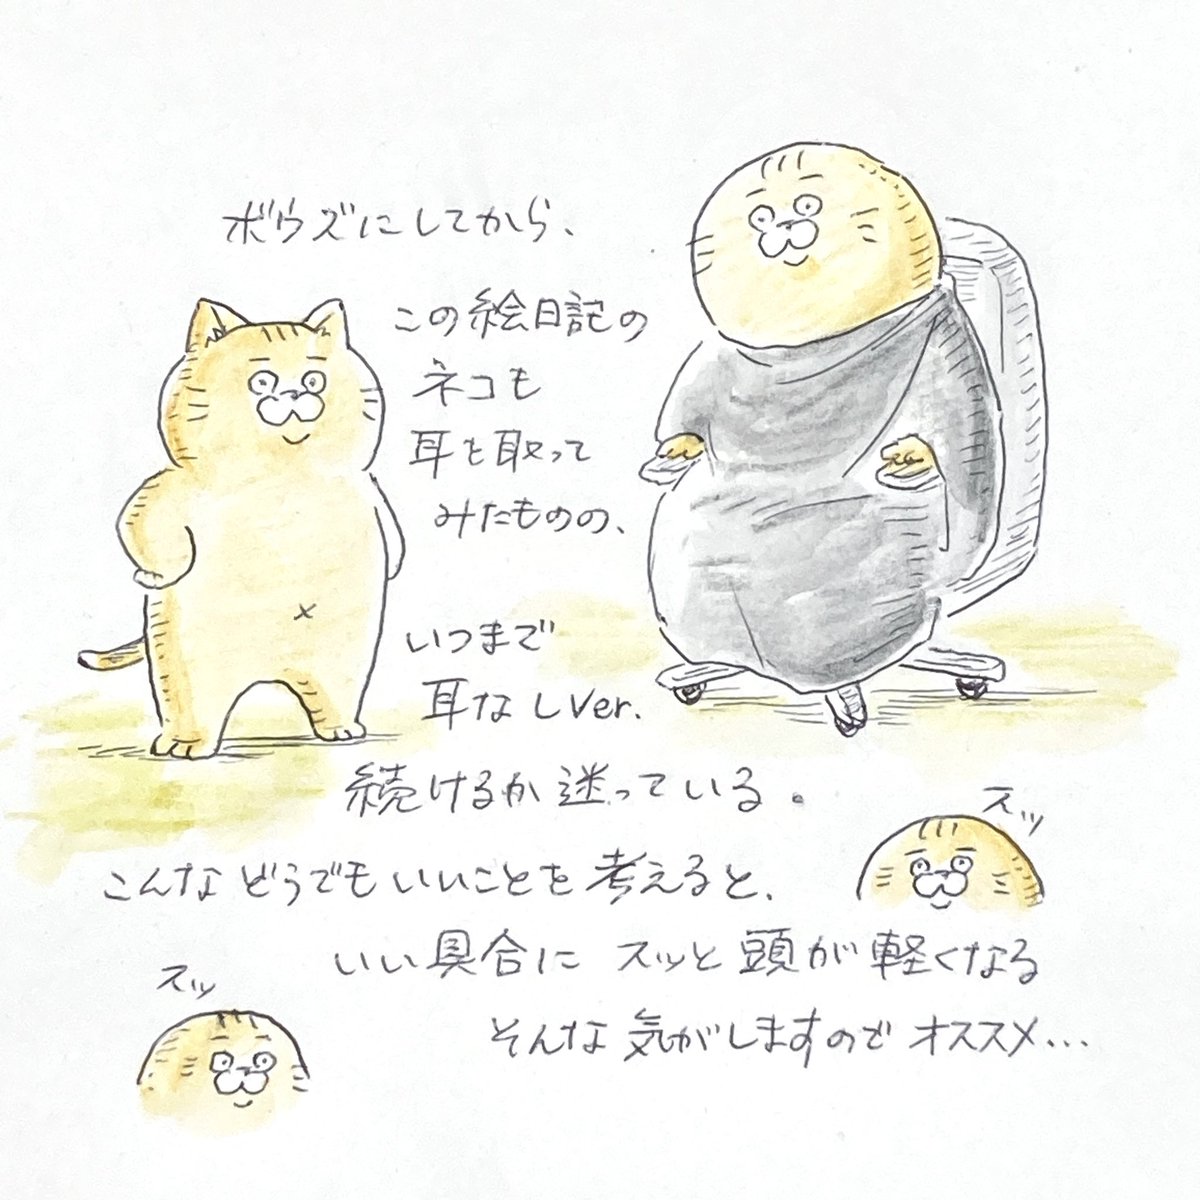 ボウズにしてから、
この絵日記の
ネコも
耳を取って
みたものの、
いつまで
耳なしver.
続けるか迷っている。
こんなどうでもいいことを考えると、
いい具合に スッと頭が軽くなる
そんな気がしますのでオススメ...
スッ
スッ